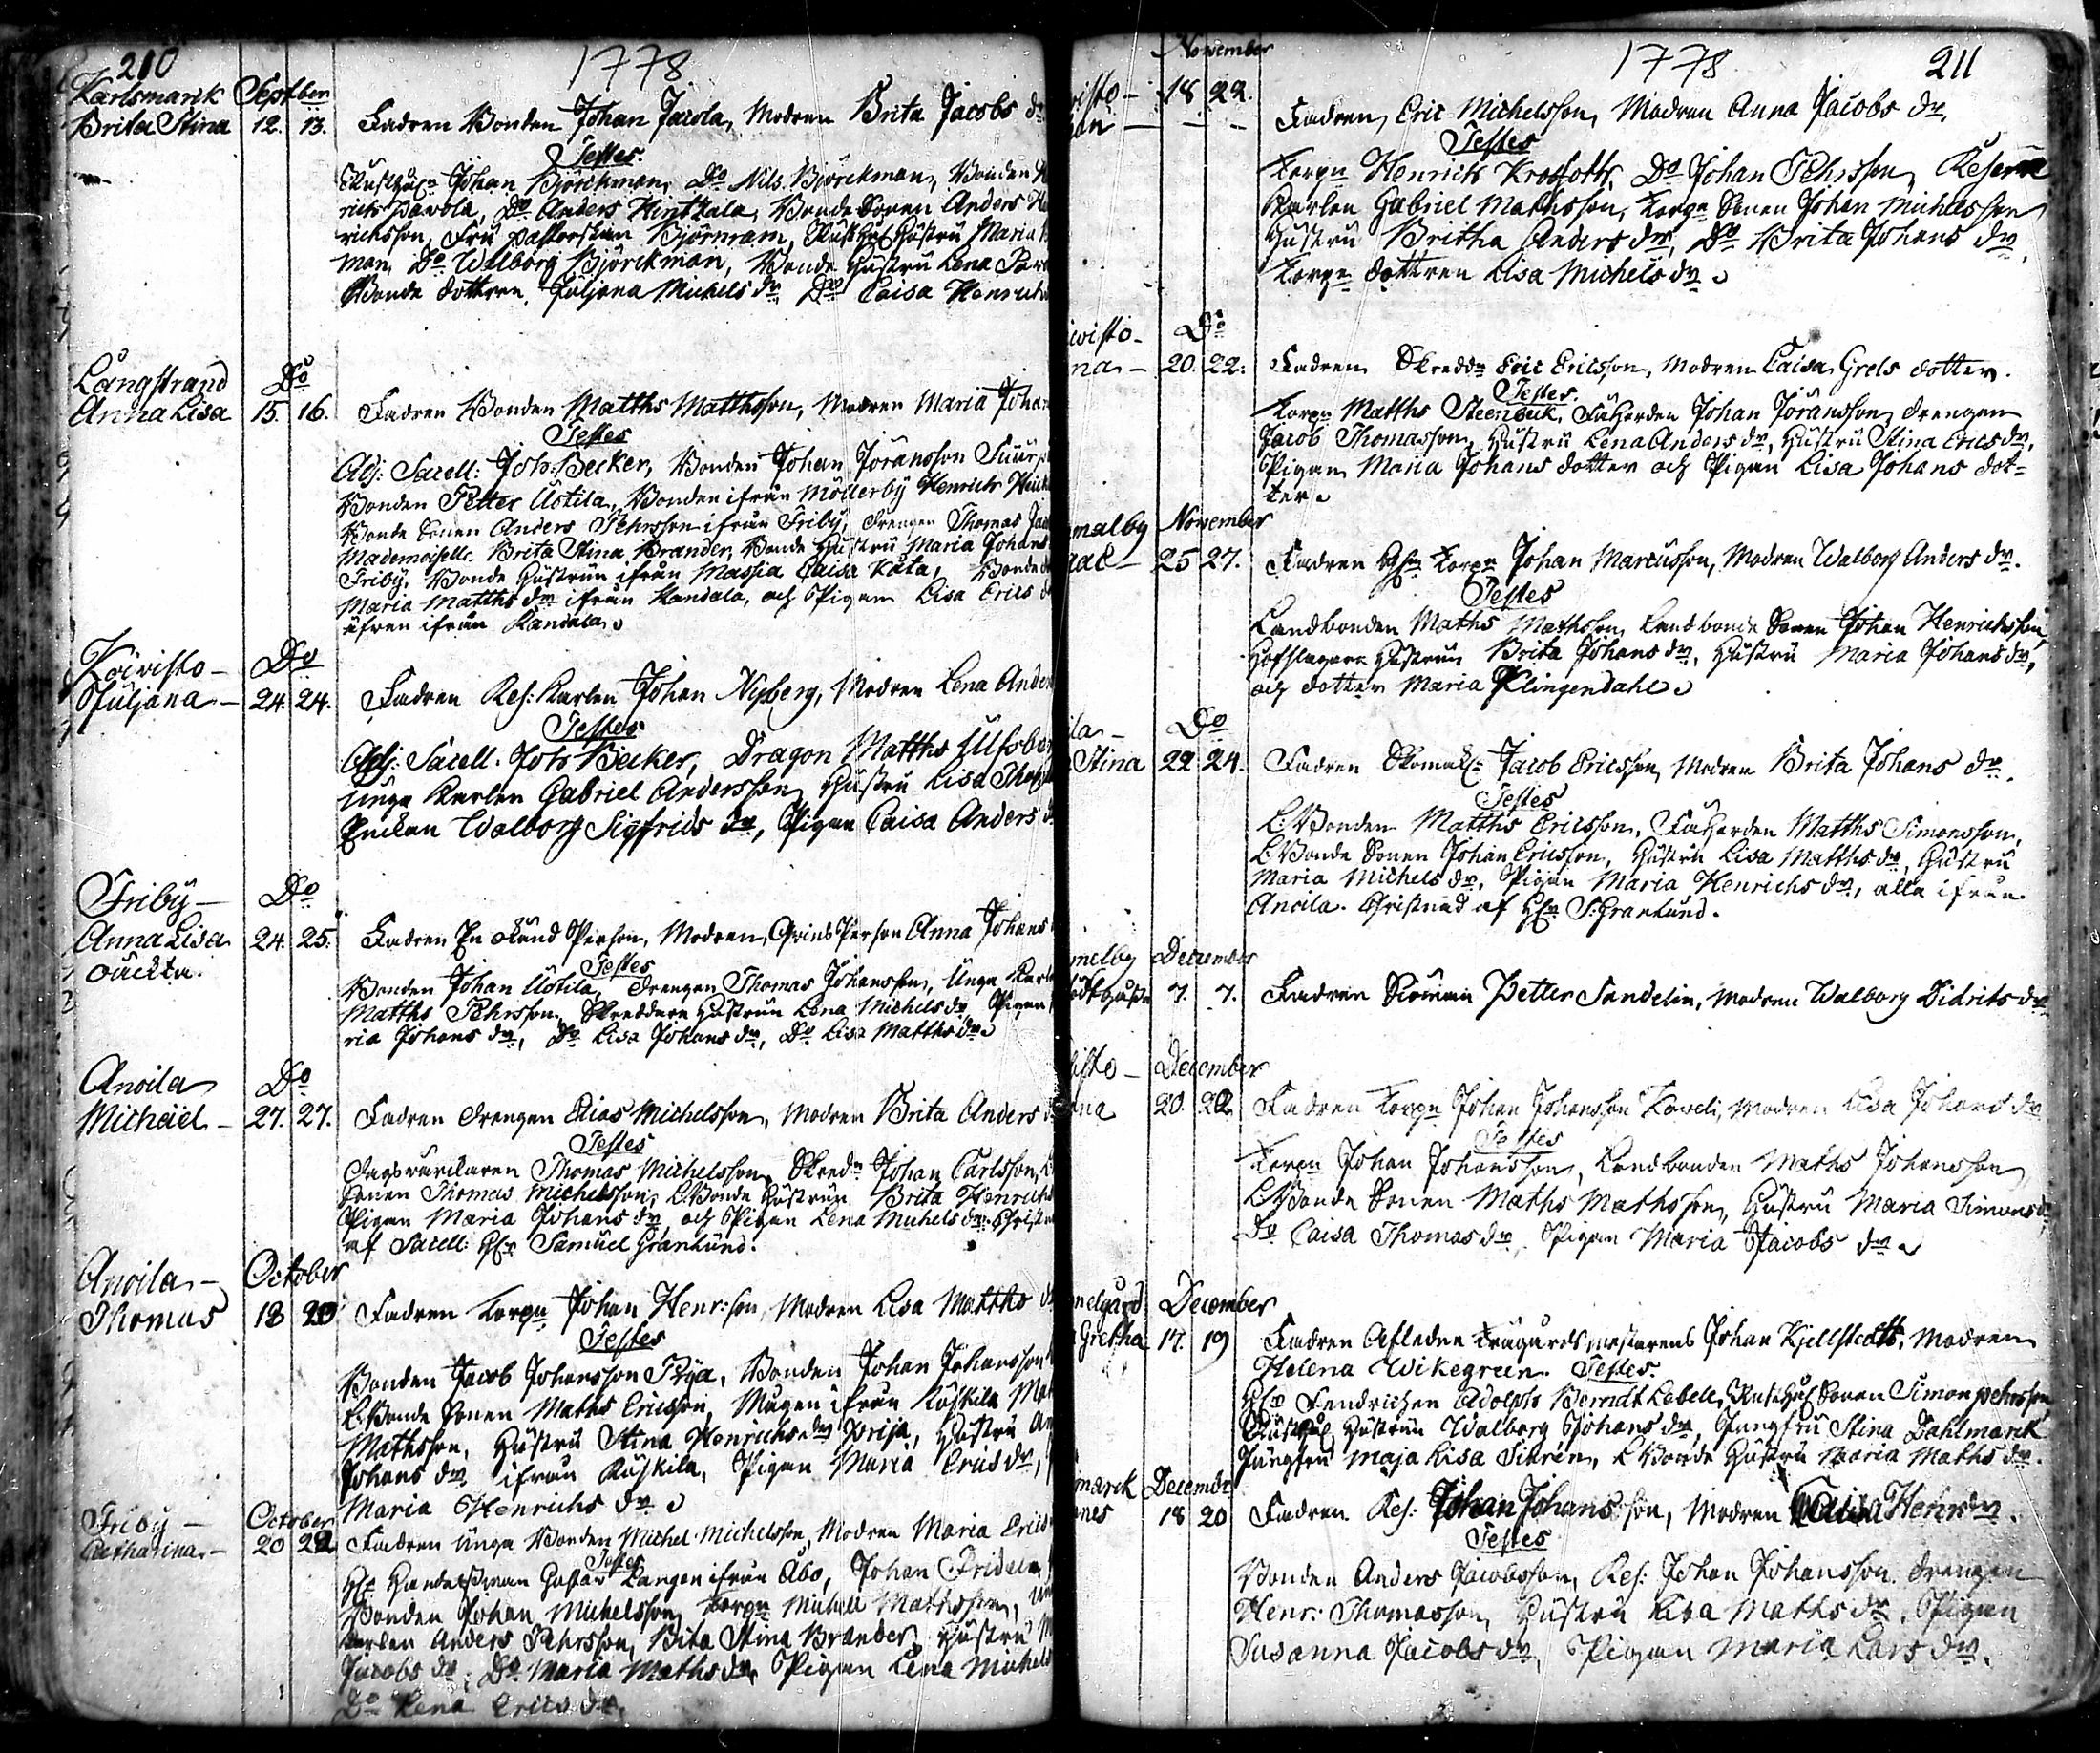 210
1778
Karlsmarck Septber
Brita Stina 12. 13. Fadren Bonden Johan Jacola, Modren Brita Jacobs dr
Testes.
Johan Björckman, Do Nils Björckman, Bonden
Do Anders Hinttala, Bonde Sonen Anders
richsson, Fru Björnram, Hustru Maria
man, Do Walborg Björckman, Bonde Hustru Lena
Bonde dottren Juljana Michels dr Do Caisa Henrichs
Långstrand Do
Anna Lisa 15. 16. Fadren Bonden Matths Matthsson, Modren Maria Johan
Testes
Adj: Sacell: Joh: Becker, Bonden Johan Joransson
Bonden Petter Ustila, Bonden ifrån Möllerby Henrich
Bonde Sonen Anders Pehrsson ifrån Friby, drengen Thomas
Mademoiselle Brita Stina Brander, Bonde Hustru Maria Johans
Friby, Bonde Hustrun ifrån Massia Caisa Kata, Bonde
Maria Matths dr ifrån Kandala, och Pigan Lisa Erics
äfven ifrån Kandala
Koivisto - Do
Juljana - 24. 24. Fadren Res: Karlen Johan Nyberg, Modren Lena Anders
Testes
Adj: Sacell. Joh Becker, Dragon Matths Ulfsber
Unga Karlen Gabriel Andersson, Hustru Lisa
Enckan Walborg Sigfrids dr, Pigan Caisa Anders
Friby - Do
Anna Lisa 24. 25. Fadren En okänd Person, Modren Qvins Person Anna Johans
oäckta.
Testes
Bonden Johan Ustila, drengen Thomas Johansson, Unga Karl
Matths Pehrsson, Skreddare Hustrun Lena Michels dr, Pigan
ria Johans dr, Do Lisa Johans dr, Do Lisa Matths dr
Anoila Do
Michael - 27. 27. Fadren drengen Elias Michelsson, Modren Brita Anders
Testes
Thomas Michelsson, Skredn Johan Carlsson,
Sonen Thomas Michelsson, LBonde Hustrun Brita Henrichs
Pigan Maria Johans dr och Pigan Lena Michels dr: Christ
af Sacell: Hr Samuel Granlund.
Anoila - October
Thomas 18 20 Fadren Torpn Johan Henr:son, Modren Lisa Matths
Testes
Bonden Jacob Johansson Prija, Bonden Johan Johansson
LBonde Sonen Maths Ericsson, Mågen ifrån Ruskila
Mathsson, Hustru Stina Henrichs dr Prija, Hustru
Johans dr ifrån Ruskila, Pigan Maria Erics dr,
Maria Henrichs dr
Friby - October
Catharina - 20 22 Fadren Unga Bonden Michel Michelsson, Modren Maria Erics
Testes
Hr Handelsman Gustav Langen ifrån Åbo, Johan
Bonden Johan Michelsson, Torpn Michell Mathsson,
karlen Anders Pehrsson, Brita Stina Brander, Hustru
Jacobs dr, Do Maria Maths dr, Pigan Lena Michels
Do Lena Erics dr.
November
1778
211
visto - 18 22.
Fadren, Eric Michelsson, Modren Anna Jacobs dr.
Testes
Torpn Henrich, Do Johan Pehrsson,
Karlen Gabriel Mathsson, Torpn Sonen Johan Michelsson
Hustru Britha Anders dr, Do Brita Johans dr,
Torpn dottren Lisa Michels dr
ivisto - Do
na - 20. 22. Fadren Skreddn Eric Ericsson, Modren Caisa Grels dotter.
Testes.
Torpn Matths Steenbeck, FäHerden Johan Joransson, drengen
Jacob Thomasson, Hustru Lena Anders dr, Hustru Stina Erics dr,
Pigan Maria Johans dotter och Pigan Lisa Johans dot-
ter
malby November
25 27. Fadren Torpn Johan Marcusson, Modren Walborg Anders dr.
Testes
Landbonden Maths Mathsson, Landbonde Sonen Johan Henrichsson,
Hofslagare Hustrun Brita Johans dr, Hustru Maria Johans dr,
och dotter Maria Klingendahl
ila - Do
Stina 22 24. Fadren Skomak: Jacob Ericsson, Modren Brita Johans dr.
Testes
LBonden Matths Ericsson, FäHerden Matths Simonsson,
LBonde Sonen Johan Ericsson, Hustru Lisa Matths dr, Hustru
Maria Michels dr, Pigan Maria Henrichs dr, alla ifrån
Anoila. Christnad af Hr S: Granlund.
melby December
7. 7. Fadren Petter Sandelin, Modren Walborg Didrics dr
isto - December
20. 22 Fadren Torpn Johan Johansson Kaveli, Modren Lisa Johans dr
Testes
Torpn Johan Johansson, Landbonden Maths Johansson
LBonde Sonen Maths Mathsson, Hustru Maria Simons dr
Do Caisa Thomas dr, Pigan Maria Jacobs dr
melgård December
Gretha 17. 19 Fadren Afledne Trägårdsmestarens Johan Kjellstedts, Modren
Helena Wikegreen. Testes.
Hr Fendrichen Adolph Berndt Lebell, Sonen Simon Pehrsson,
Hustrun Walborg Johans dr, Jungfru Stina Dahlmarck
Jungfru Maja Lisa Sikren, LBonde Hustru Maria Maths dr.
marck Decembr
nes 18 20 Fadren Res: Johan Johansson, Modren Caisa Henr dr.
Testes
Bonden Anders Jacobsson, Res: Johan Johansson, drengen
Henr: Thomasson, Hustru Lisa Maths dr, Pigan
Susanna Jacobs dr, Pigan Maria Lars dr.